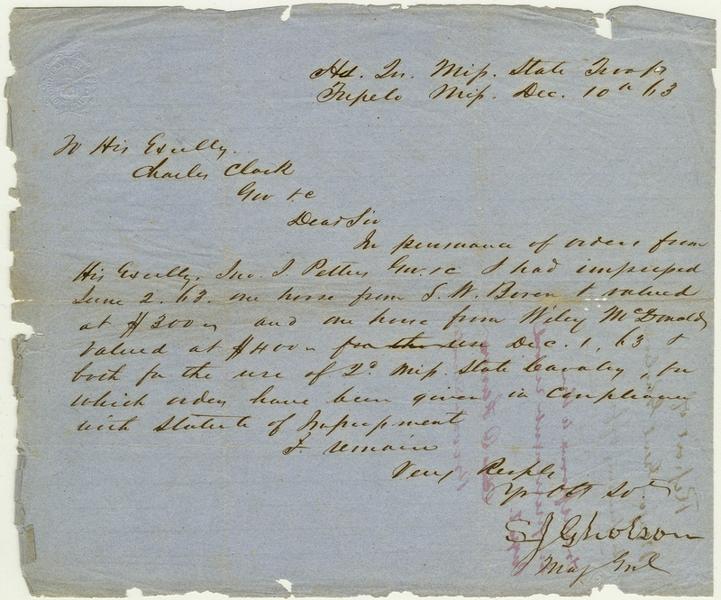 Hd. Qr. Miss. State Troops
Tupelo Miss. Dec. 10th 63
To His Excelly.
Charles Clark
Gov &c
Dear Sir
In pursuance of orders from
His Excelly. Jno. J. Pettus Gov. &c I had impressed
June 2. 63. one horse from S. W. Boren & valued
at $300.00 and one horse from Wiley McDonald
valued at $400.00 Dec. 1, 63 &
both for the use of 2d Miss. State Cavalry, for
which orders have been given in compliance
with Statute of Impressment
I remain
Very Resply
Yr Obt Svt
S J Gholson
Maj Genl